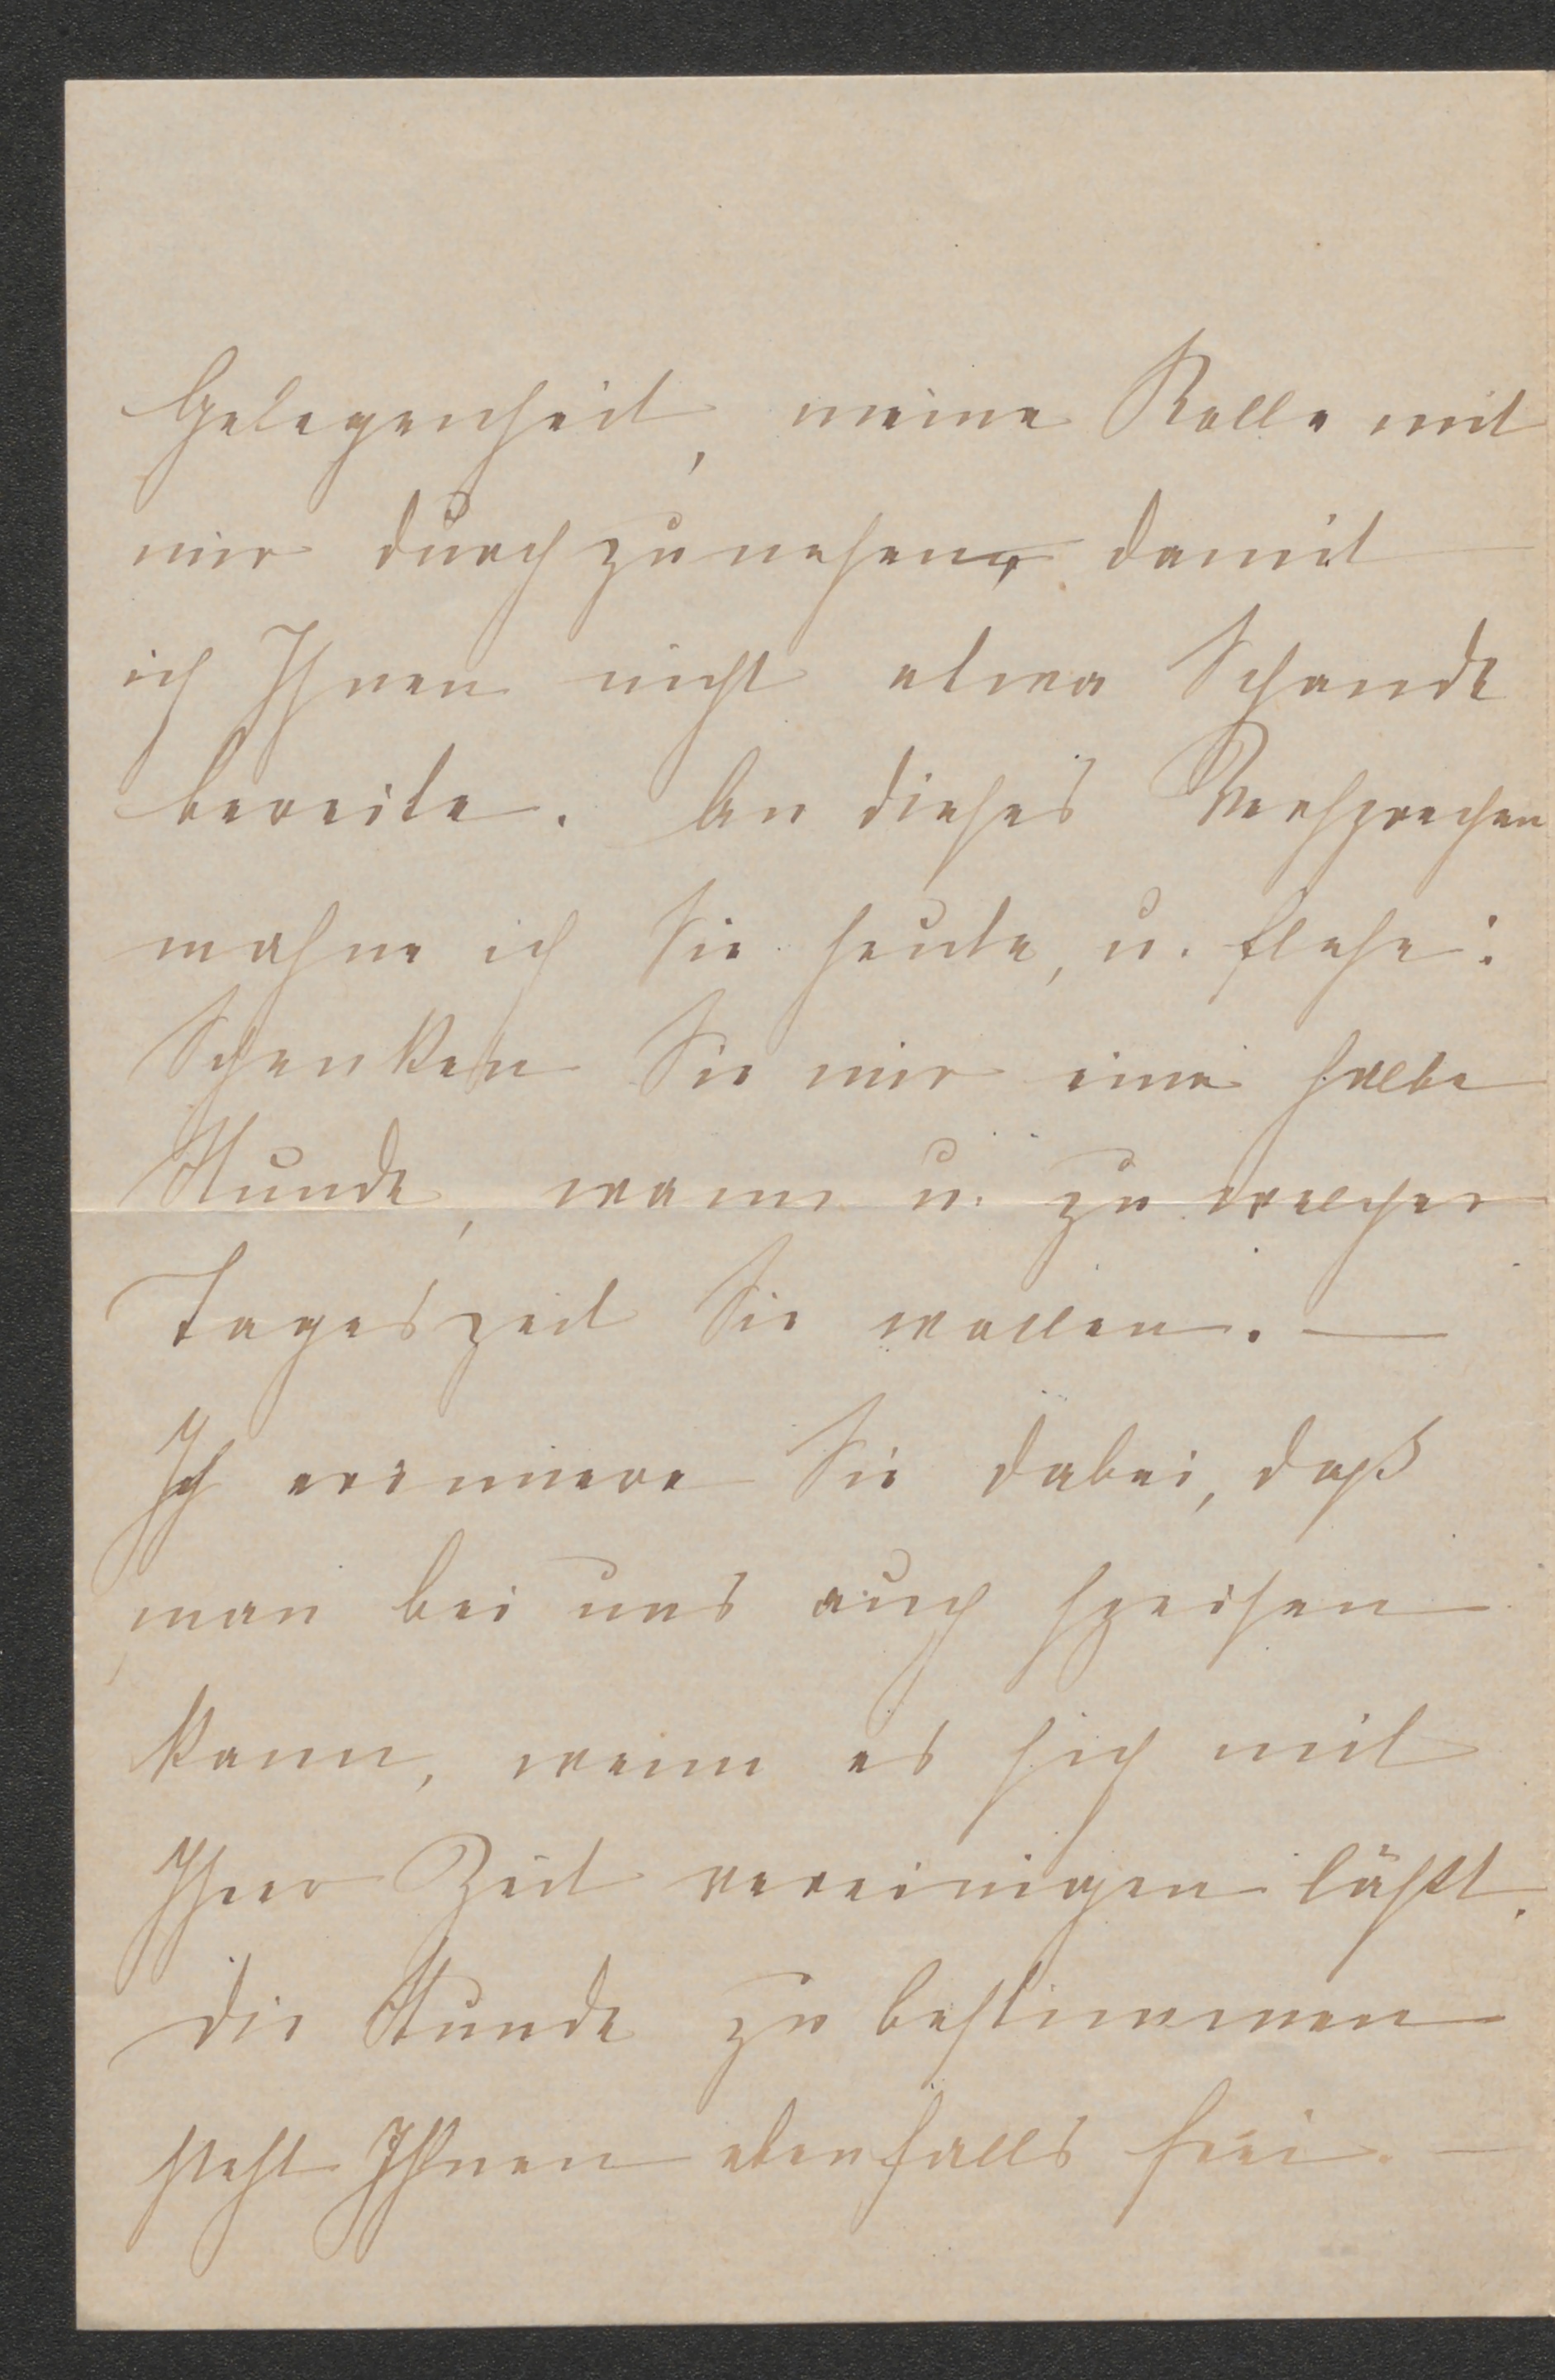 Gelegenheit, meine Rolle mit
mir durchzunehen, damit
ich Ihnen nicht etwa Schande
bereite. An dieses Versprechen
mahne ich Sie heute, u. flehe:
Schenken Sie mir eine halbe
Stunde, wann u. zu welcher
Tageszeit Sie wollen. —
Ich erinnere Sie dabei, daß
man bei uns auch speisen
kann, wenn es sich mit
Ihrer Zeit vereinigen läßt.
Die Stunde zu bestimmen
steht Ihnen ebenfalls frei. —